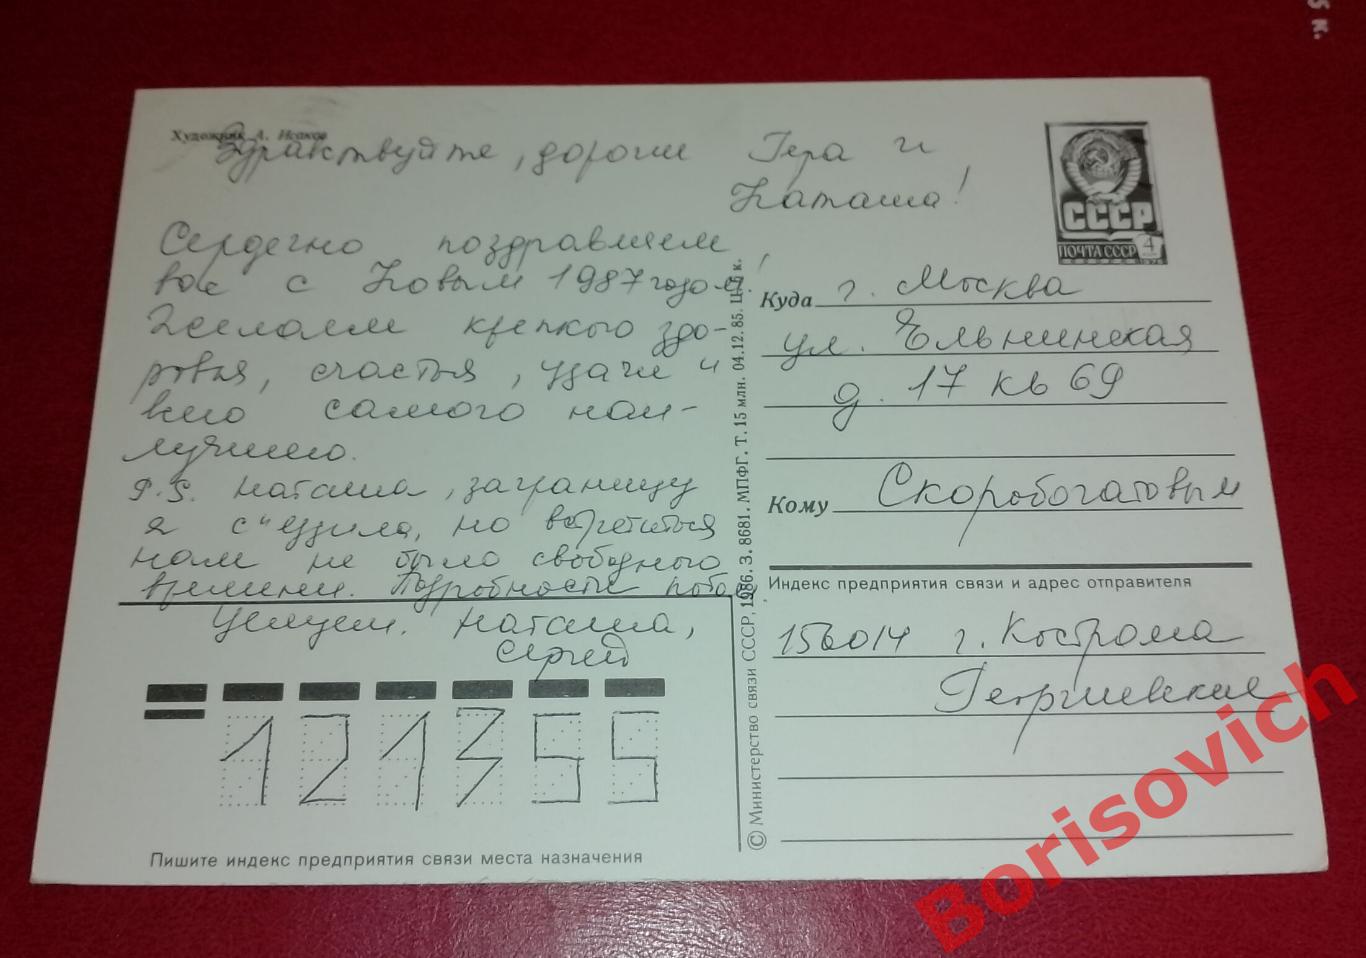 5 к.
Художник А. Исаков
Здравствуйте, дорогие Гера и
Наташа!
Сердечно поздравляем
вас с Новым 1987 годом!
Желаем крепкого здо-
ровья, счастья, удачи и
всего самого наи-
лучшего.
P.S. Наташа, заграницу
я съездила, но встретиться
нам не было свободного
времени. Подробности
Целуем. Наташа,
Сергей
121355
Пишите индекс предприятия связи места назначения
© Министерство связи СССР, 1986. З. 8681. МПФГ. Т. 15 млн. 04.12.85. Ц. 5 к.
СССР
ПОЧТА СССР 4
Куда г. Москва
ул. Ельнинская
д. 17 кв 69
Кому Скоробогатовым
Индекс предприятия связи и адрес отправителя
156014 г. Кострома
Георгиевские
Borisovich